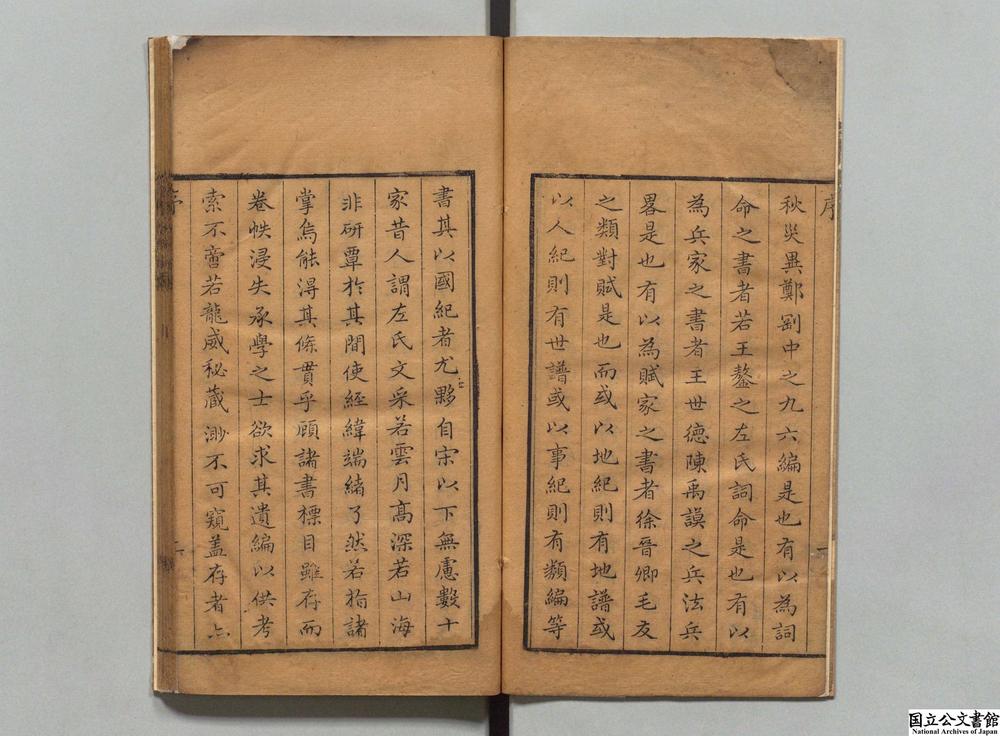 序
秋災異鄭劉中之九六編是也有以為詞
命之書者若王鏊之左氏詞命是也有以
為兵家之書者王世德陳禹謨之兵法兵
畧是也有以為賦家之書者徐晉卿毛友
之類對賦是也而或以地紀則有地譜或
以人紀則有世譜或以事紀則有類編等
書其以國紀者尤夥自宋以下無慮數十
家昔人謂左氏文采若雲月高深若山海
非研覃於其間使經緯端緒了然若指諸
掌烏能淂其條貫乎顧諸書標目雖存而
卷帙浸失承學之士欲求其遺編以供考
索不啻若龍威秘藏渺不可窺盖存者亦
序
国立公文書館
National Archives of Japan